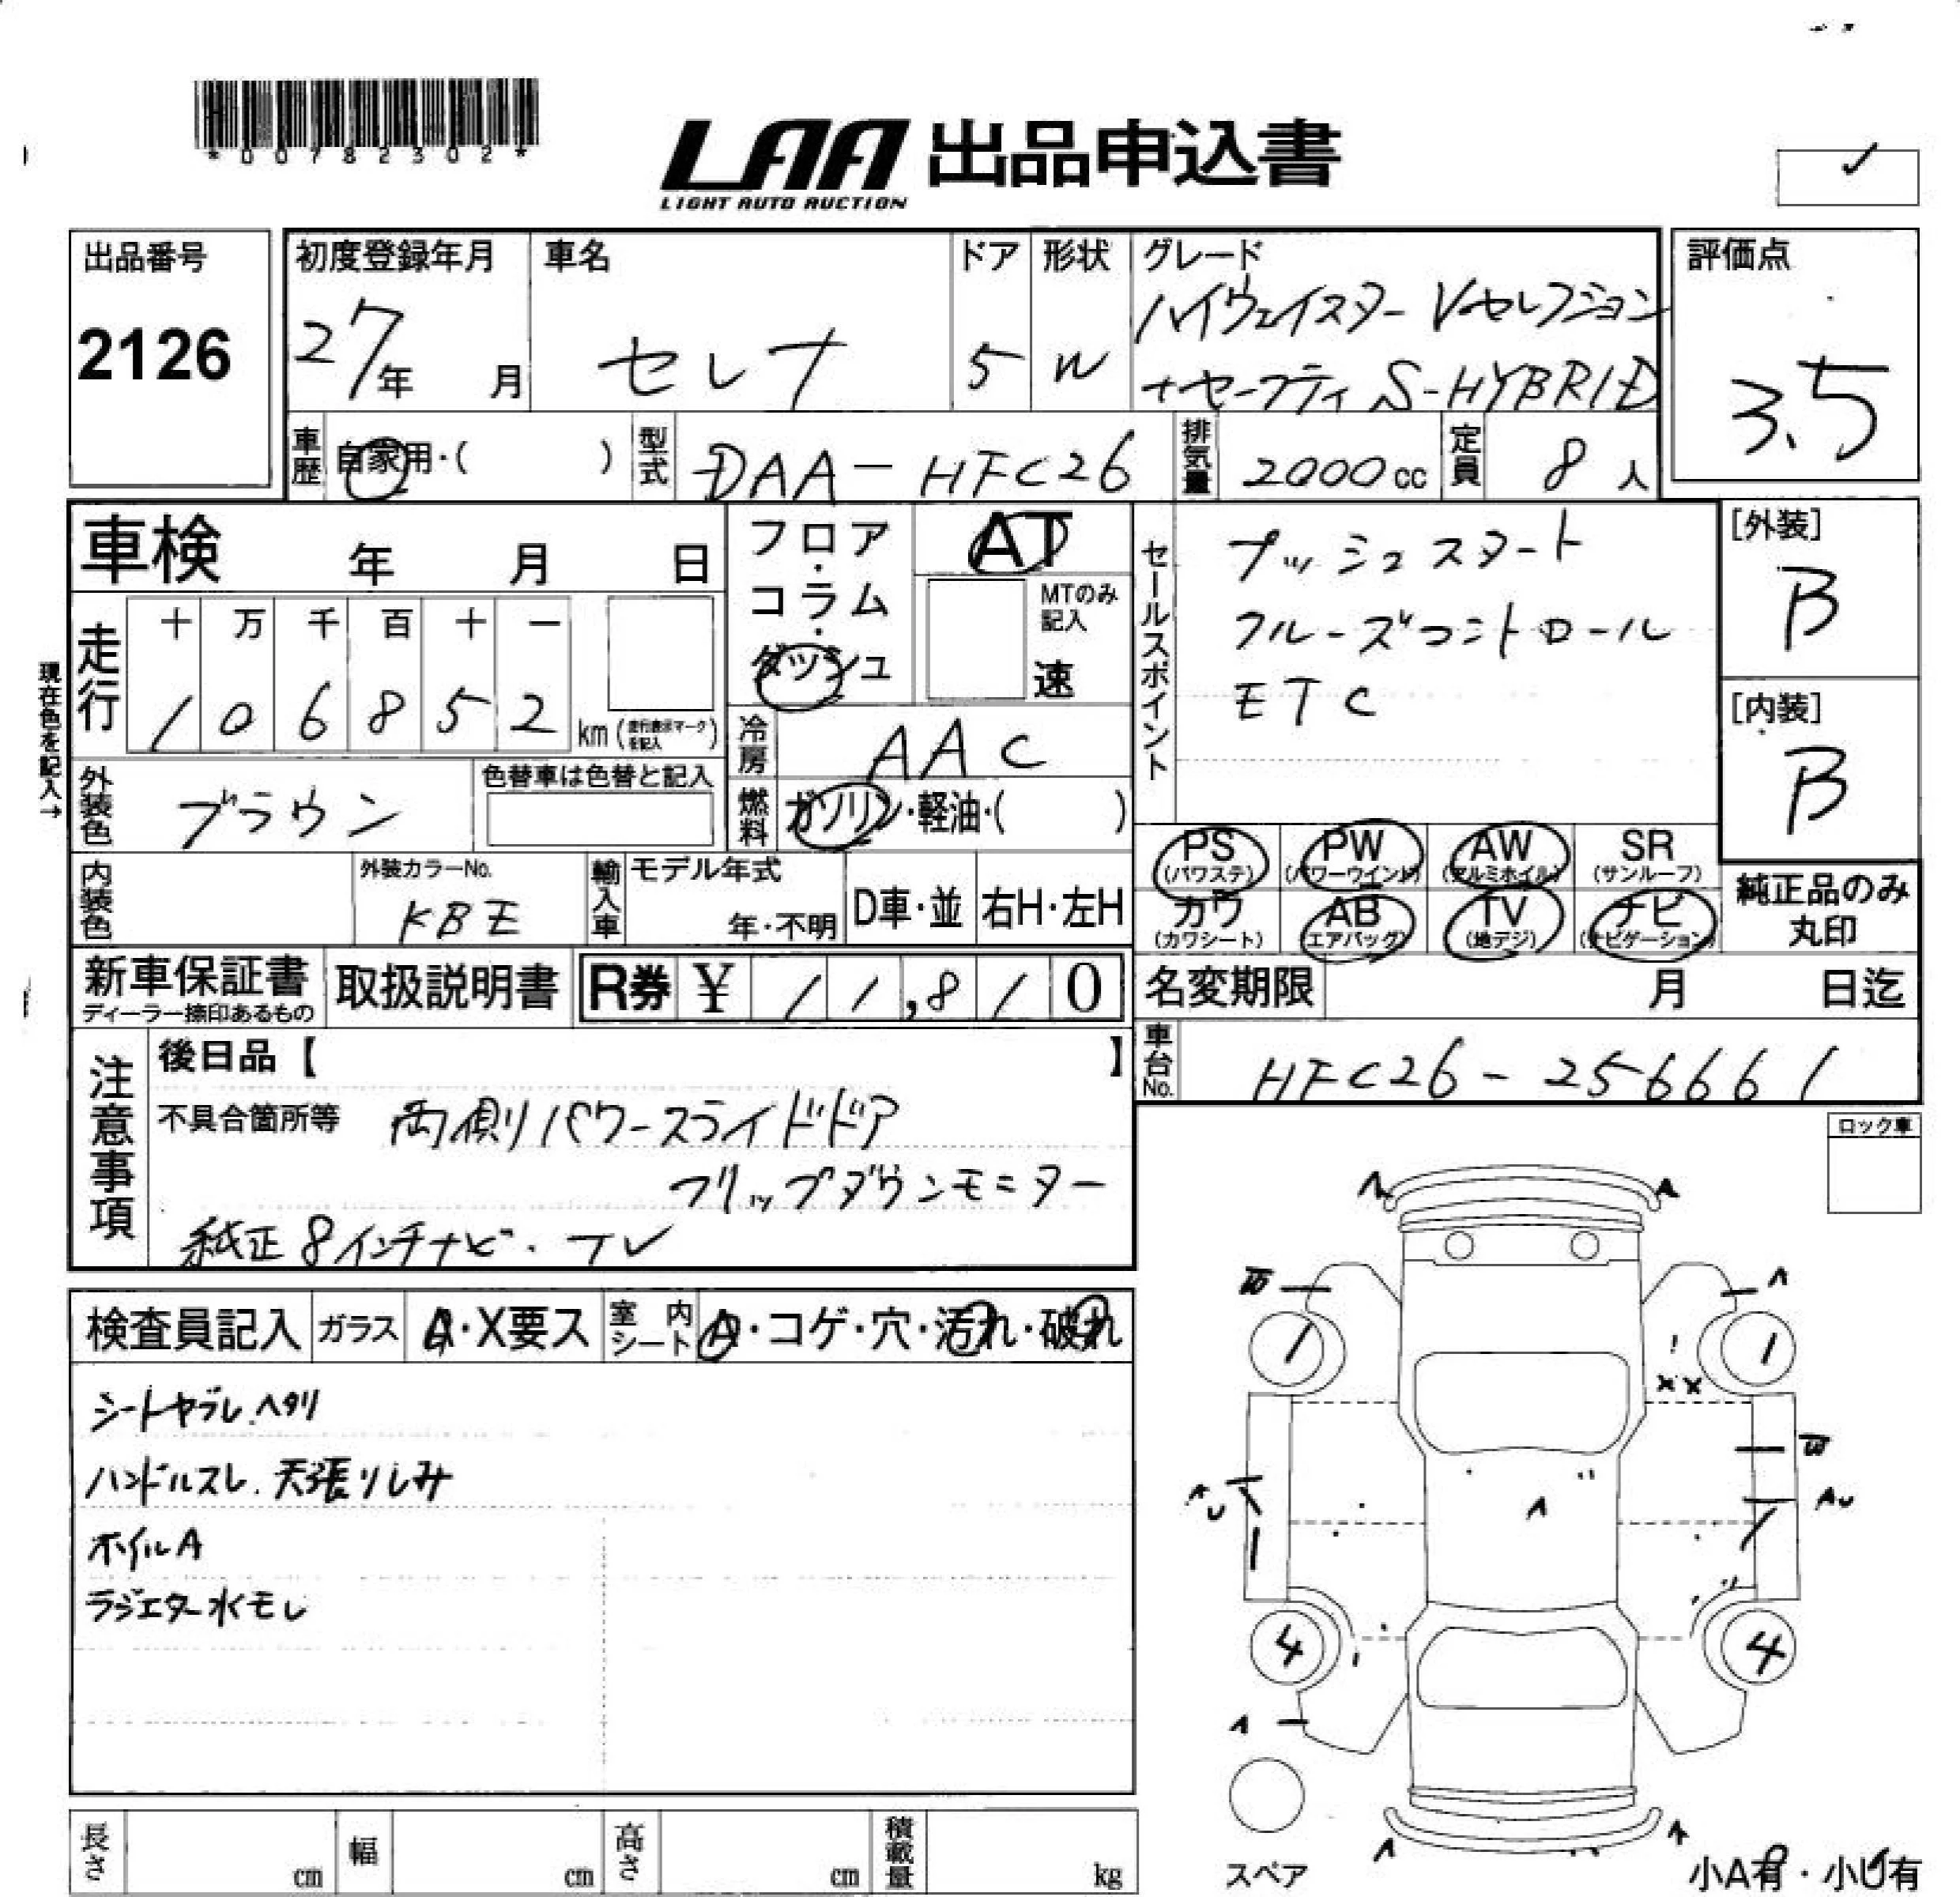 *00782302*
LAA 出品申込書
LIGHT AUTO AUCTION
出品番号
2126
初度登録年月
27年 月
車名
セレナ
ドア
5
形状
W
グレード
ハイウェイスター Vセレクション
+セーフティ S-HYBRID
評価点
3.5
車歴
自家用・( )
型式
DAA-HFC26
排気量
2000cc
定員
8人
車検 年 月 日
フロア・コラム・ダッシュ
AT
MTのみ記入
速
セールスポイント
プッシュスタート
クルーズコントロール
ETC
[外装]
B
[内装]
B
現在色を記入→
走行
十 万 千 百 十 一
1 0 6 8 5 2 km (走行表示マークを記入)
冷房
AAC
外装色
ブラウン
色替車は色替と記入
燃料
ガソリン・軽油・( )
PS (パワステ)
PW (パワーウインド)
AW (アルミホイル)
SR (サンルーフ)
カワ (カワシート)
AB (エアバッグ)
TV (地デジ)
ナビ (ナビゲーション)
純正品のみ
丸印
内装色
外装カラーNo.
KBE
輸入車
モデル年式
年・不明
D車・並
右H・左H
新車保証書
ディーラー捺印あるもの
取扱説明書
R券 ¥ 11,810
名変期限 月 日迄
車台No.
HFC26-256661
注意事項
後日品【 】
不具合箇所等 両側パワースライドドア
フリップダウンモニター
純正8インチナビ・TV
ロック車
検査員記入
ガラス A・X要ス
室内シート A・コゲ・穴・汚れ・破れ
シートヤブレ.ヘタリ
ハンドルスレ.天張りしみ
ホイルA
ラジエター水モレ
A A
W A
1 1
XX
W
AU AU
A
4 4
A
A A
スペア
小A有・小U有
長さ cm
幅 cm
高さ cm
積載量 kg